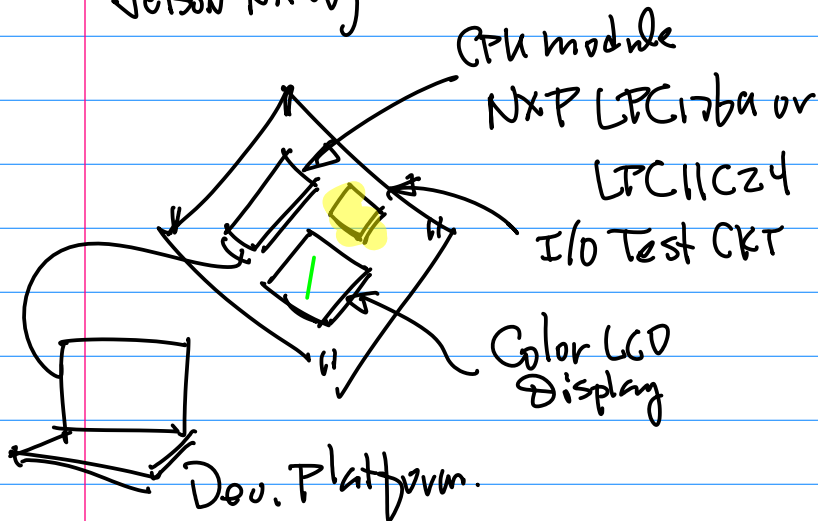 CPU module
NXP LPC1769 or
LPC11C24
I/O Test CKT
Color LCD
Display
Dev. Platform.